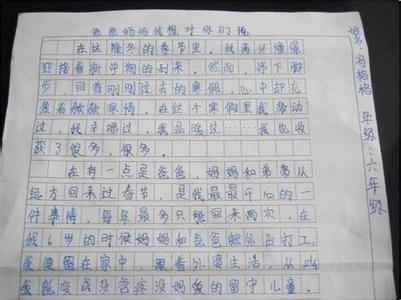 爸爸妈妈我想对你们说
在这隆冬的季节里，我满怀憧憬
迎接着新学期的到来。然而，停下脚
步，回首刚刚过去的寒假，心中却充
满着款款深情。在这个寒假里我激动
过，我幸福过，我品嗨过……我也收
获了很多，很多。
在有一点是爸爸，妈妈和弟弟从
远方回来过春节，是我最最开心的一
件事情，每年最多只能回来两次。在
我6岁的时候妈妈和爸爸就外出打工，
我便留在家中，跟着外婆生活，从此
我就变成没爸疼没妈爱的留守儿童。
年级：六年级